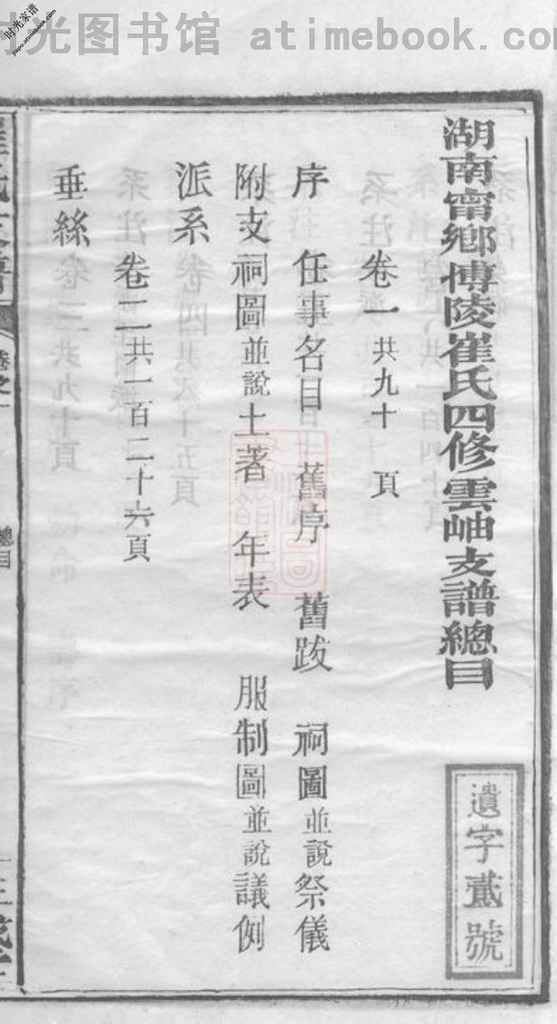 时光图书馆 atimebook.com
时光家谱
湖南甯鄉博陵崔氏四修雲岫支譜總目
遺字貳號
卷一共九十 頁
序 任事名目 舊序 舊跋 祠圖並說祭儀
附支祠圖並說土著 年表 服制圖並說議例
派系
卷二共一百二十六頁
垂絲
總目